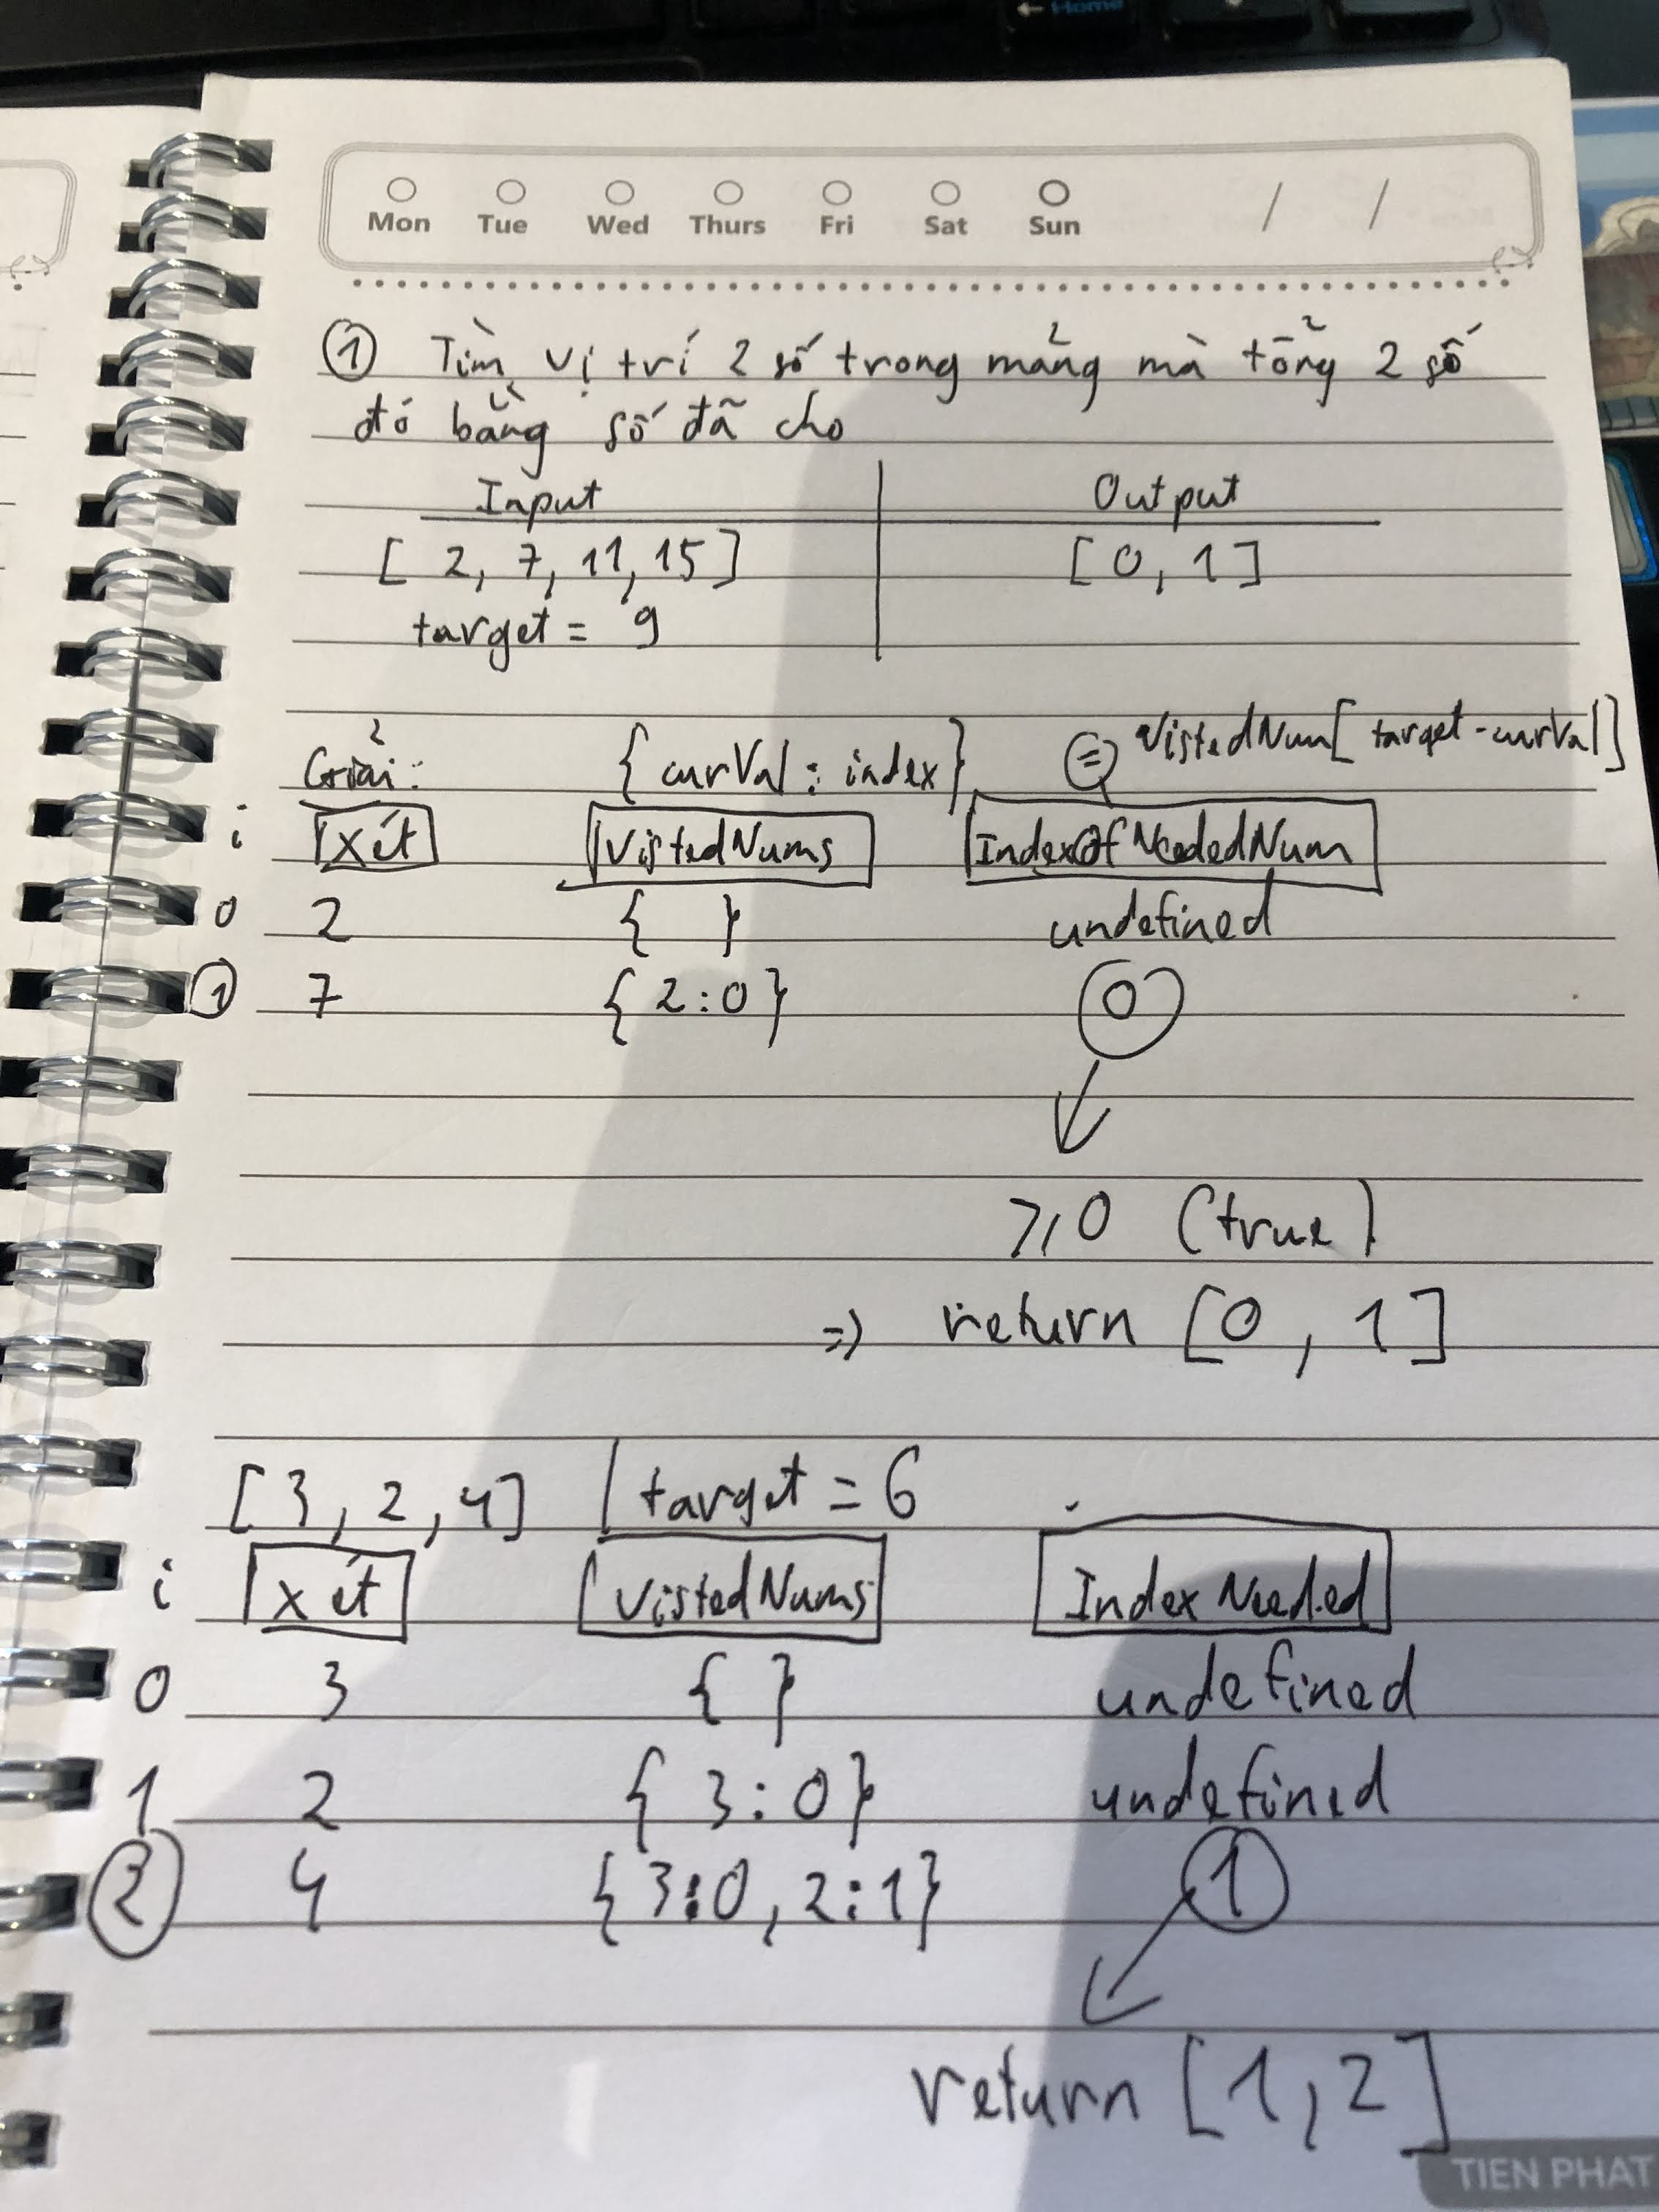 ← Home
Mon Tue Wed Thurs Fri Sat Sun / /
① Tìm vị trí 2 số trong mảng mà tổng 2 số
đó bằng số đã cho
Input Output
[ 2, 7, 11, 15 ] [ 0, 1 ]
target = 9
Giải: { curVal : index } = VistedNum[ target - curVal ]
i Xét VistedNums IndexOfNeededNum
0 2 { } undefined
① 7 { 2:0 } 0
≥ 0 (true)
=> return [ 0, 1 ]
[ 3, 2, 4 ] | target = 6
i Xét VistedNums Index Needed
0 3 { } undefined
1 2 { 3:0 } undefined
② 4 { 3:0, 2:1 } ①
return [ 1, 2 ]
TIEN PHAT